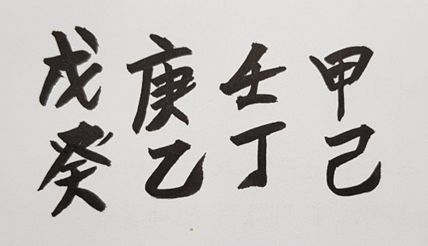 甲己
壬丁
庚乙
戊癸